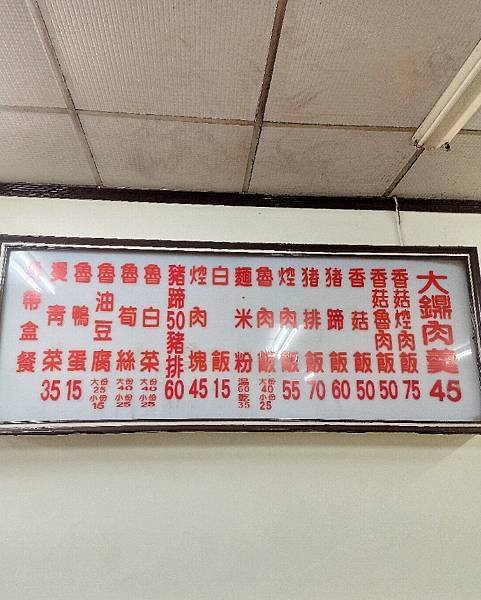 大鼎肉羹45
香菇焢肉飯75
香菇魯肉飯50
香菇飯50
猪蹄飯60
猪排飯70
焢肉飯55
魯肉飯 大份40 小份25
麵米粉 湯60 乾35
白飯15
焢肉塊45
豬蹄50豬排60
魯白菜 大份40 小份25
魯筍絲 大份40 小份25
魯油豆腐 大份25 小份15
魯鴨蛋15
燙青菜35
外帶盒餐